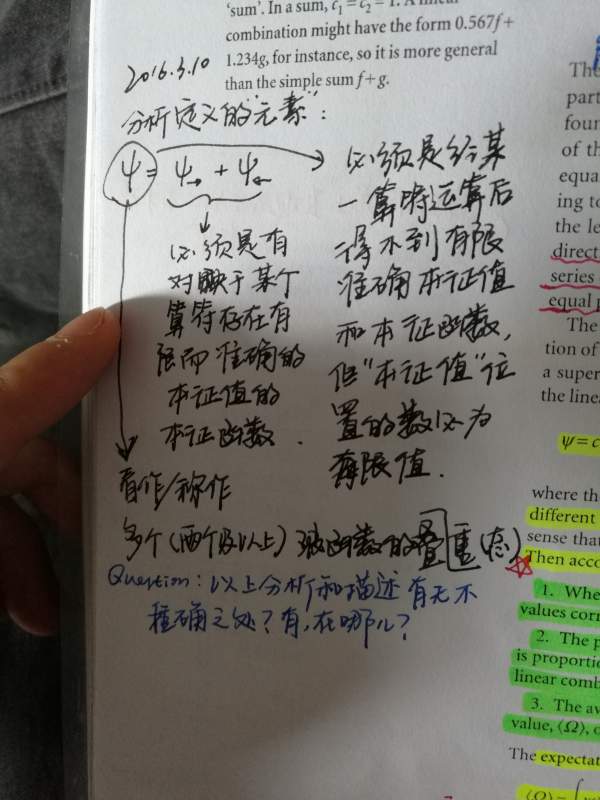 'sum'. In a sum, c₁ = c₂ = 1. A linear
combination might have the form 0.567f +
1.234g, for instance, so it is more general
than the simple sum f + g.
2016.3.10
分析定义的"元素"：
ψ = ψ→ + ψ←
必须是有
对映于某个
算符存在有
限而准确的
本证值的
本证函数.
必须是给某
一算符运算后
得不到有限
准确本证值
和本证函数,
但"本证值"位
置的数必为
有限值.
看作/称作
多个(两个及以上)波函数的叠重(态)
Question: 以上分析和描述有无不
准确之处? 有, 在哪儿?
The
part
foun
of th
equa
ing to
the le
direct
series
equal p
The
tion of
a super
the linea
ψ = c
where th
different
sense that
Then acco
1. Whe
values corr
2. The p
is proportio
linear comb
3. The av
value, ⟨Ω⟩, o
The expecta
⟨Ω⟩ = ∫